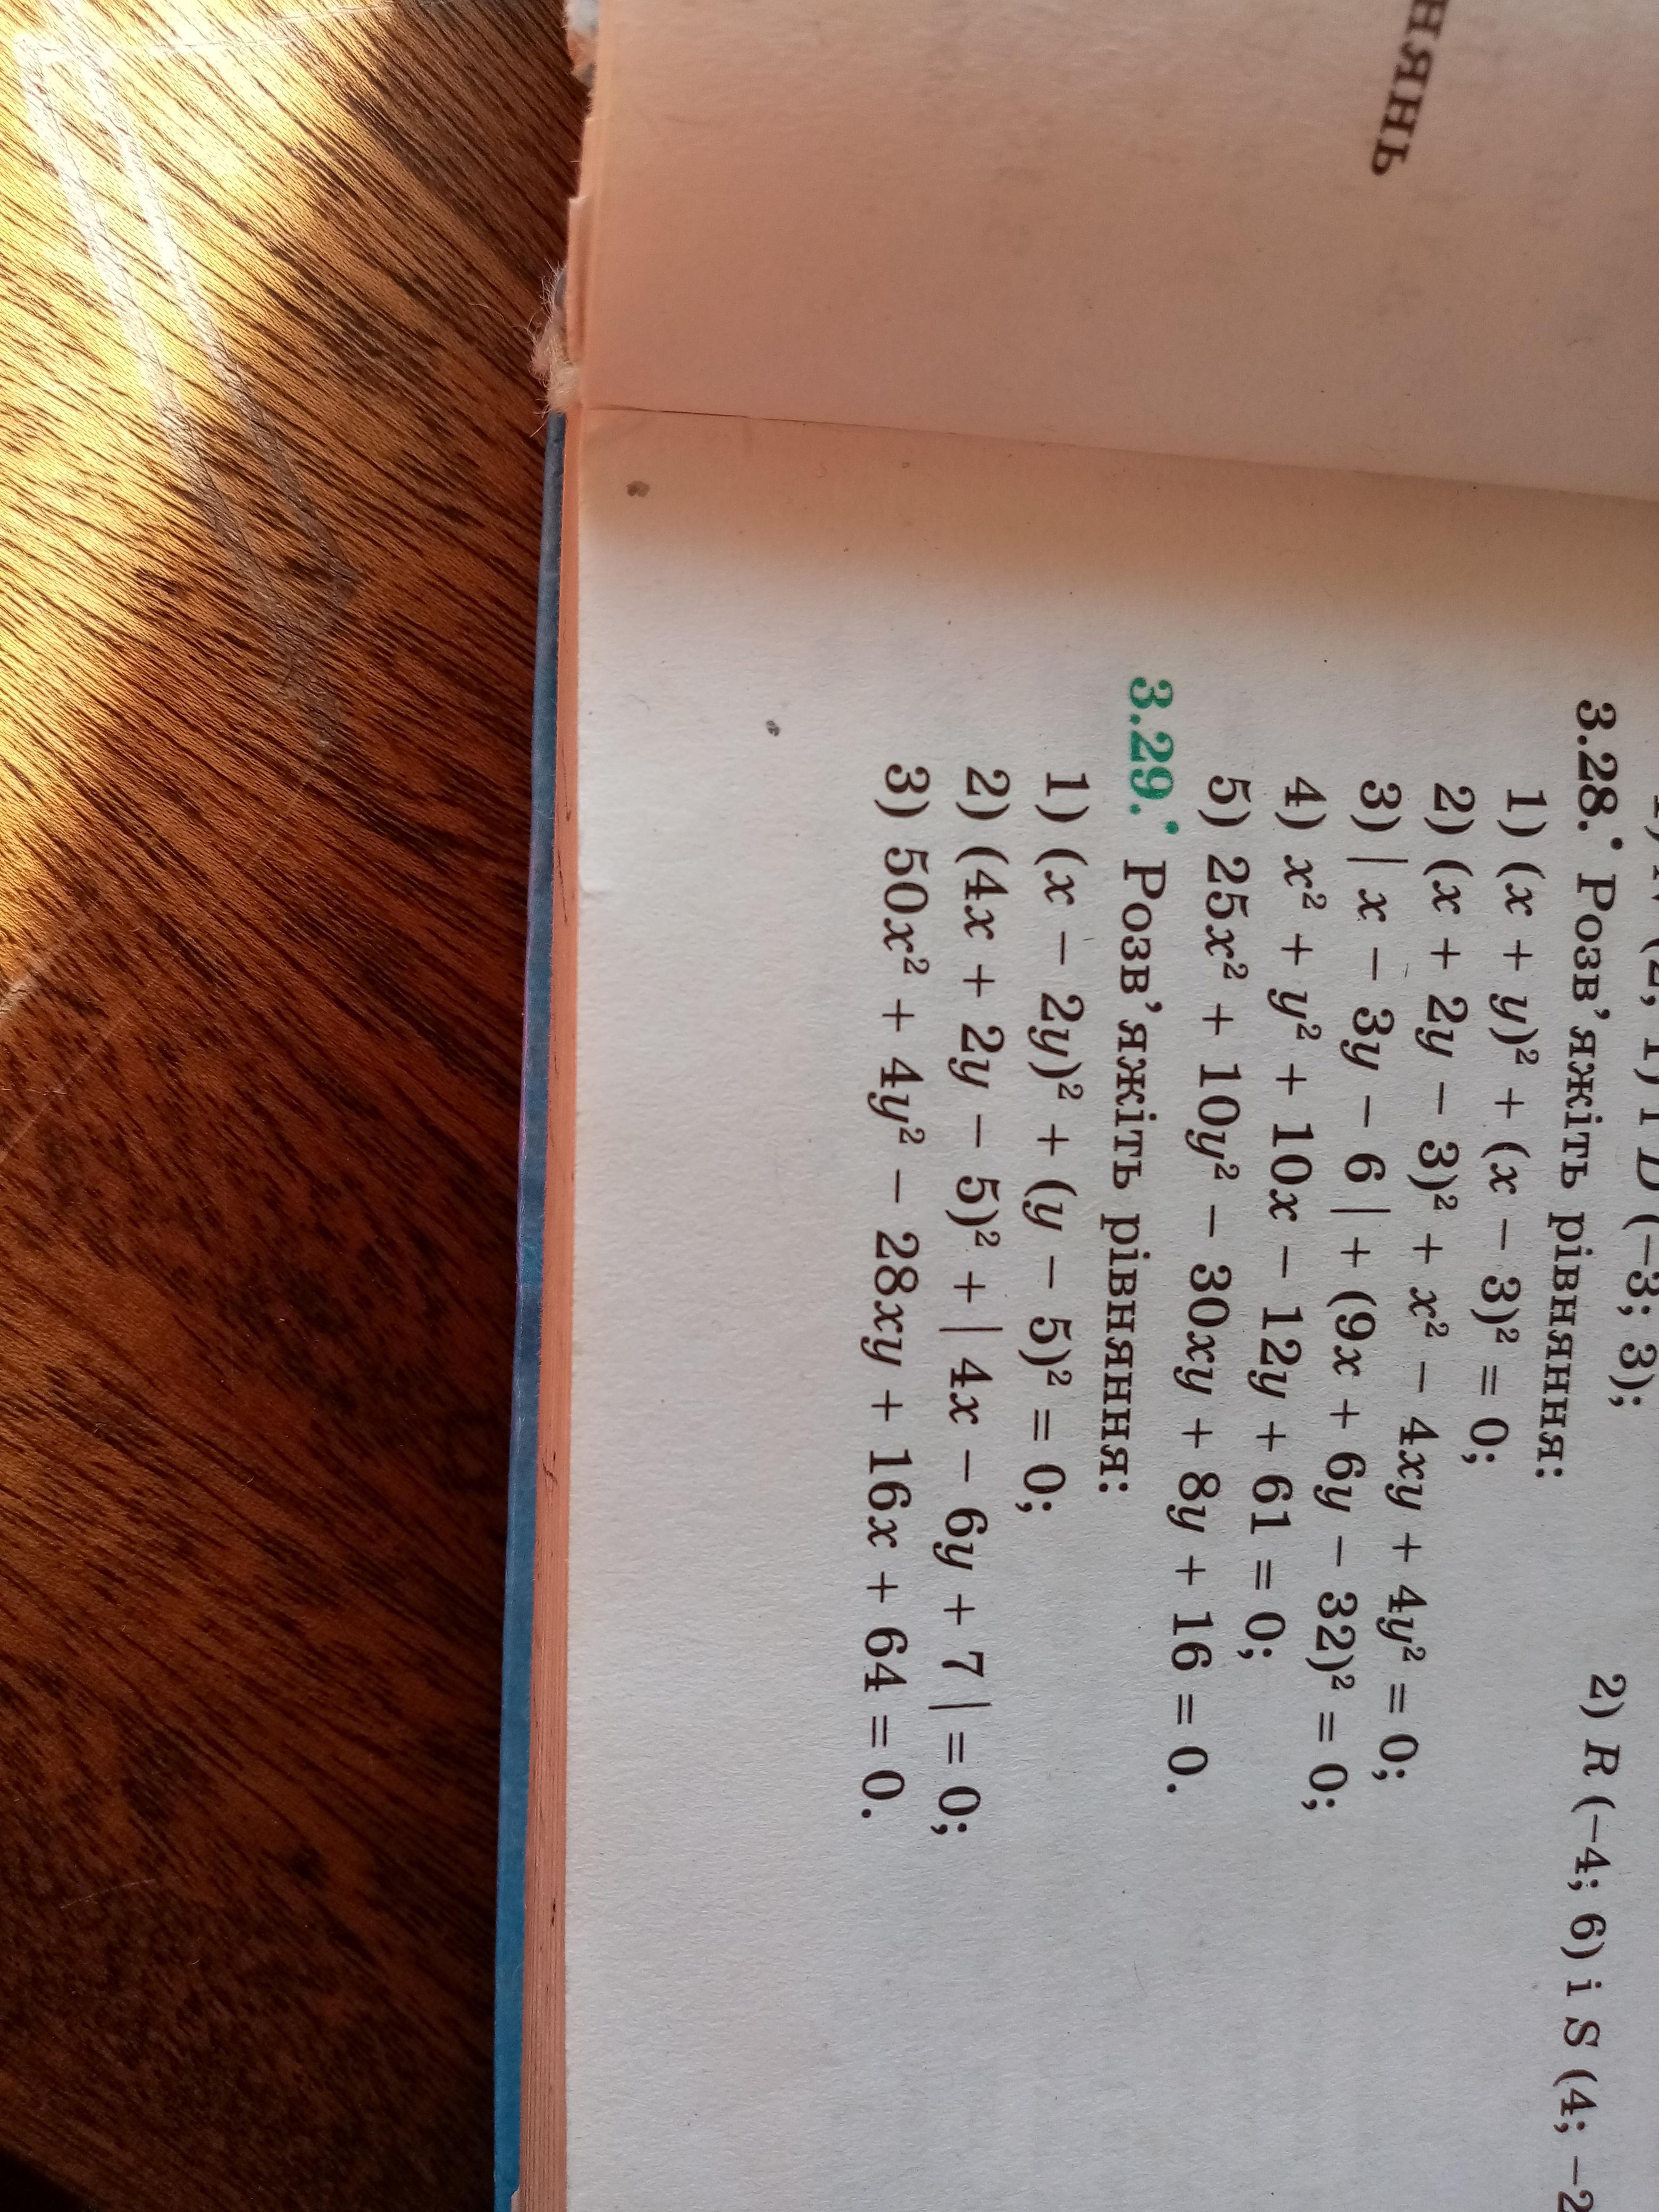 нянь
(2; 1) і D (−3; 3);
2) R (−4; 6) і S (4; −2
3.28.• Розв’яжіть рівняння:
1) (x + y)² + (x − 3)² = 0;
2) (x + 2y − 3)² + x² − 4xy + 4y² = 0;
3) | x − 3y − 6 | + (9x + 6y − 32)² = 0;
4) x² + y² + 10x − 12y + 61 = 0;
5) 25x² + 10y² − 30xy + 8y + 16 = 0.
3.29.• Розв’яжіть рівняння:
1) (x − 2y)² + (y − 5)² = 0;
2) (4x + 2y − 5)² + | 4x − 6y + 7 | = 0;
3) 50x² + 4y² − 28xy + 16x + 64 = 0.